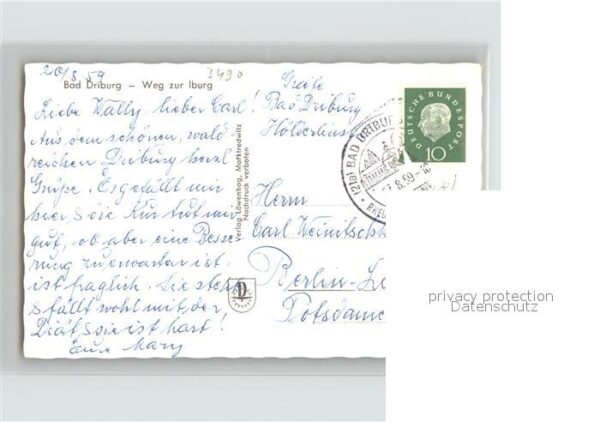 20/8.59
3490
Bad Driburg – Weg zur Iburg
Liebe Wally, lieber Carl!
Aus dem schönen, wald
reichen Driburg herzl.
Grüße. Es gefällt mir
hier, die Kur tut mir
gut, ob aber eine Besse
rung zu erwarten ist,
ist fraglich. Sie
fällt wohl mit der
Diät, sie ist hart!
Eure Mary
Bad Driburg
Verlag Löwenhag, Marktredwitz
Nachdruck verboten
Herrn
Carl
Berlin-
Potsdame
DEUTSCHE BUNDESPOST
10
(21a) BAD DRIBU
8.59
RHEU
privacy protection
Datenschutz